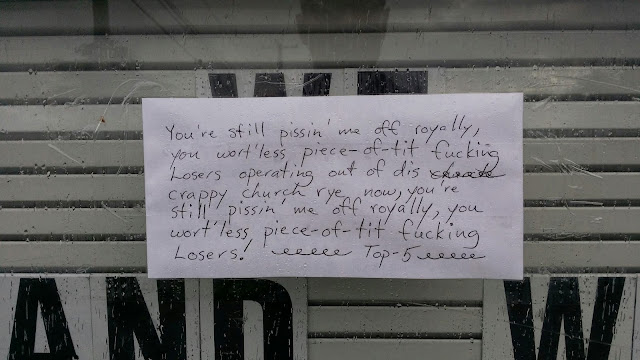 WE
You're still pissin' me off royally,
you wort'less piece-of-tit fucking
Losers operating out of dis
crappy church rye now, you're
still pissin' me off royally, you
wort'less piece-of-tit fucking
Losers! Top-5
AND W